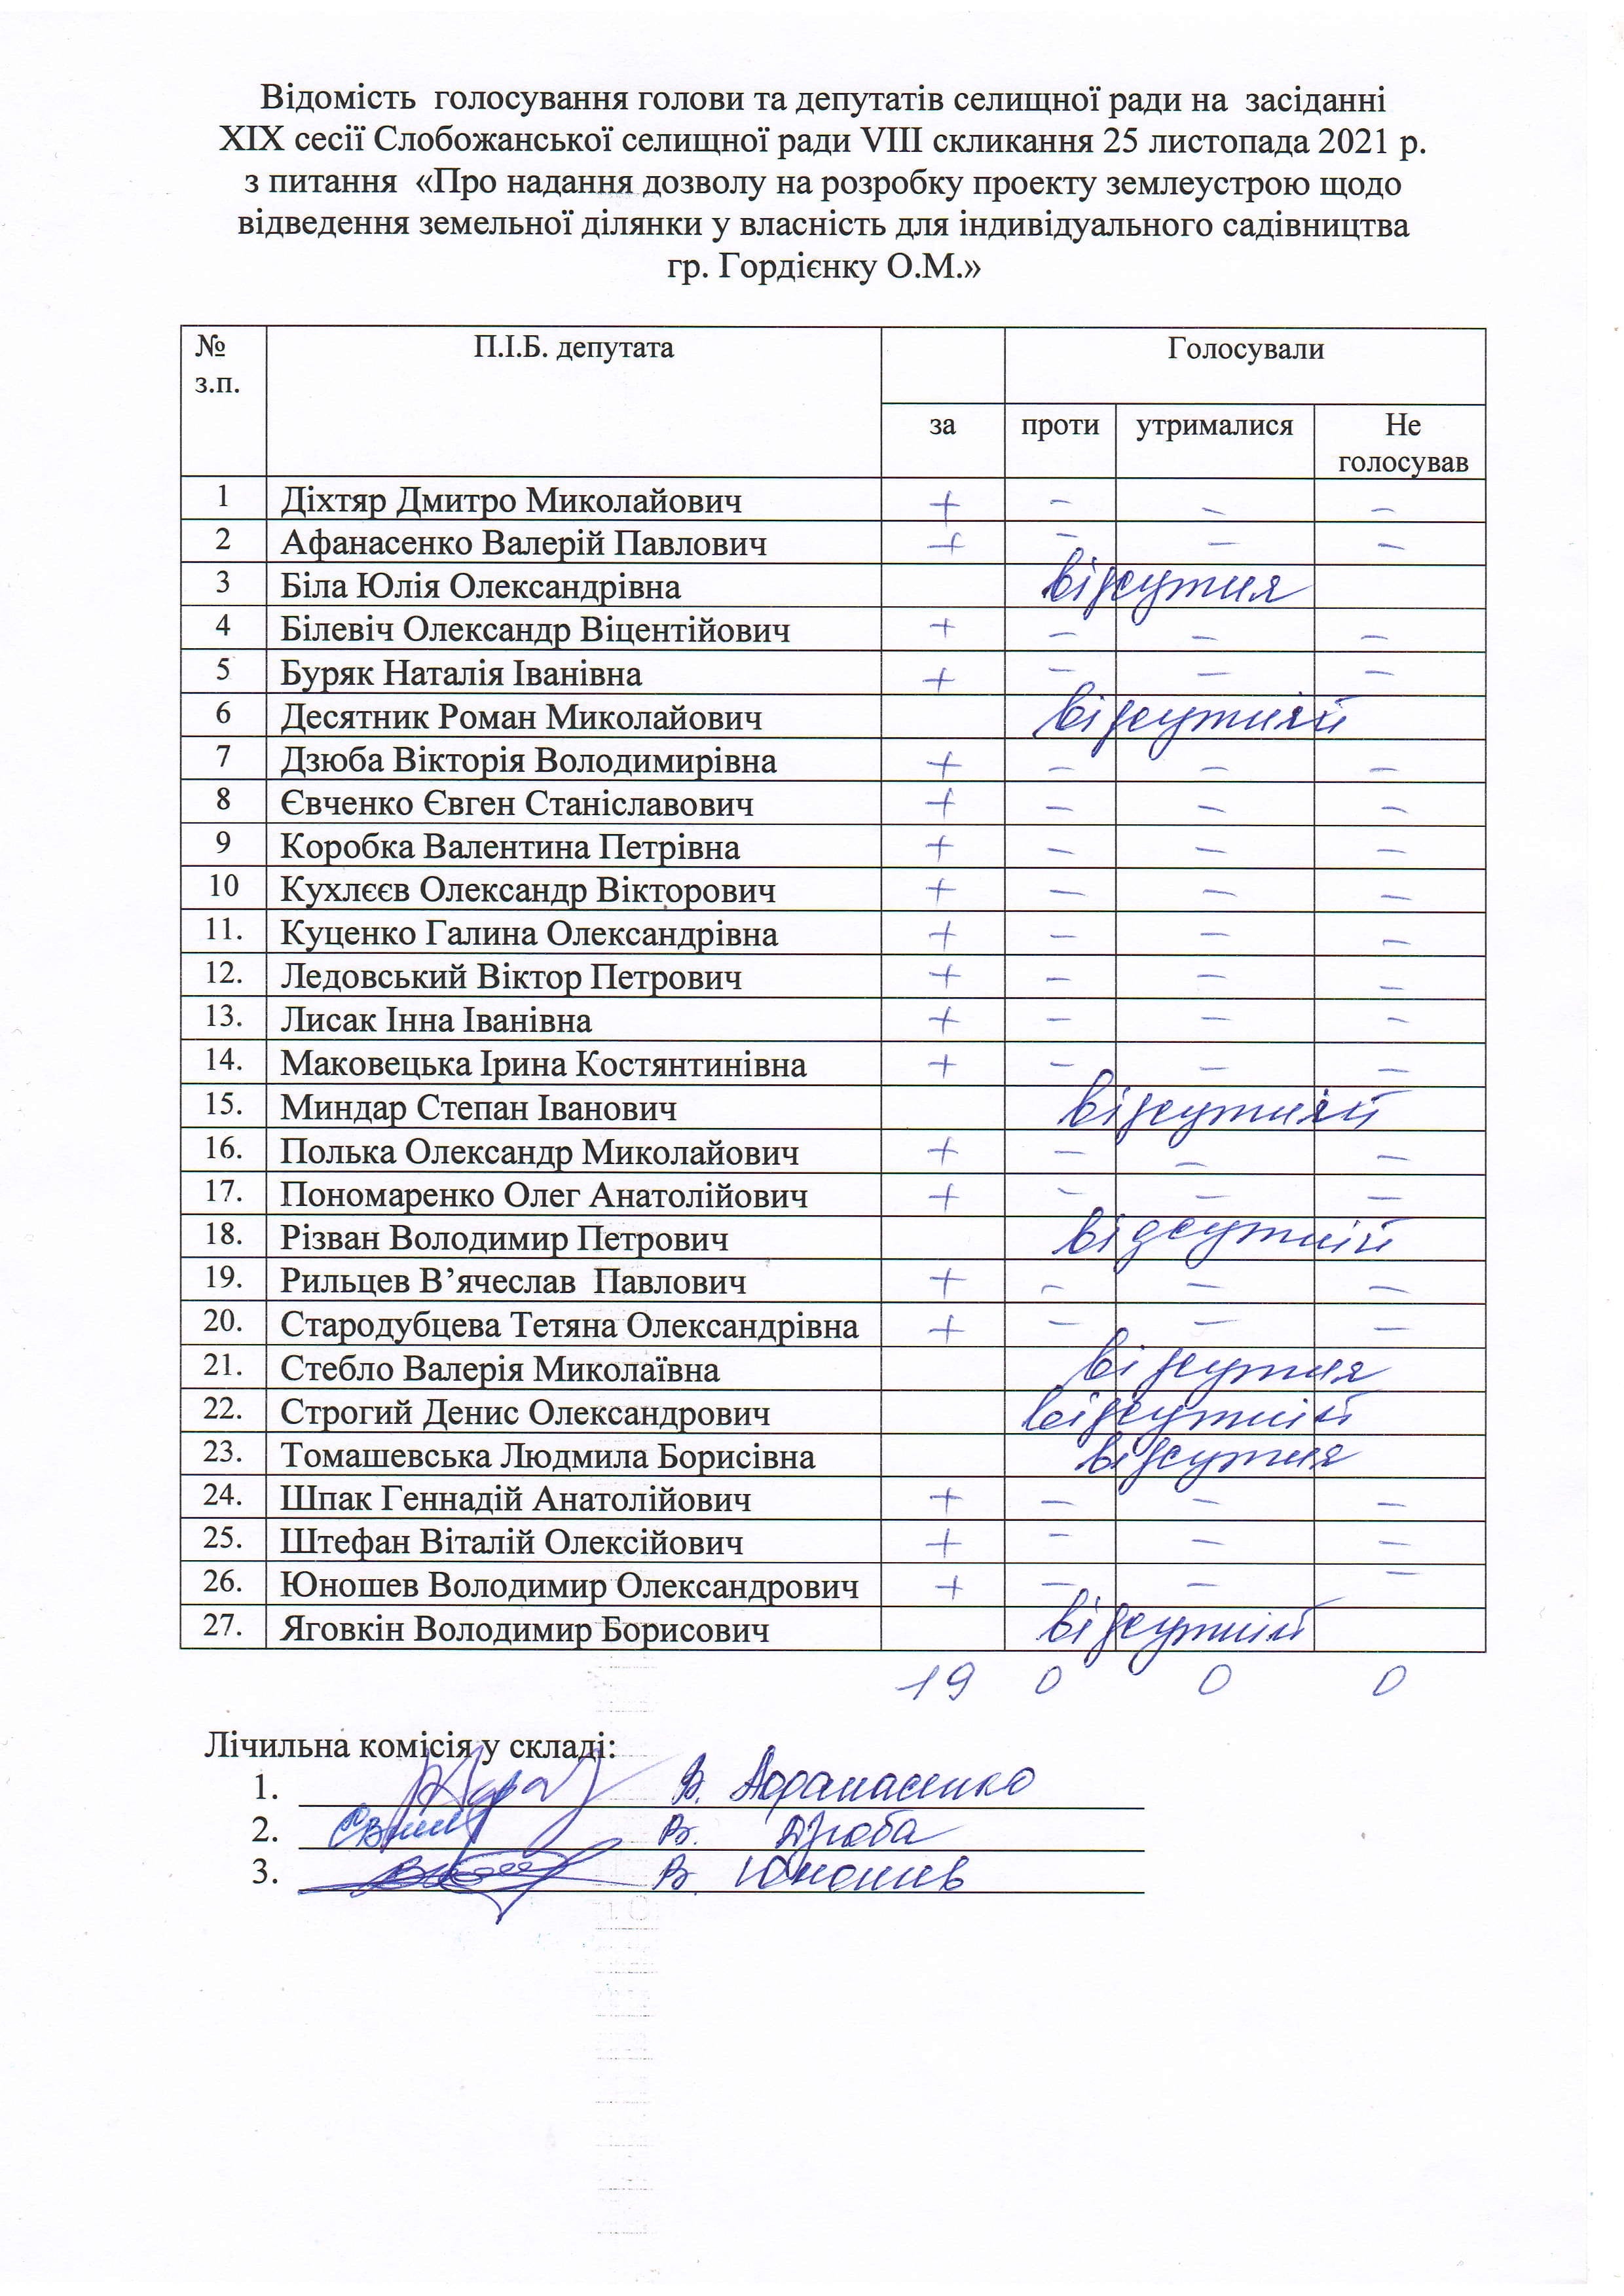 Відомість голосування голови та депутатів селищної ради на засіданні
XIX сесії Слобожанської селищної ради VIII скликання 25 листопада 2021 р.
з питання «Про надання дозволу на розробку проекту землеустрою щодо
відведення земельної ділянки у власність для індивідуального садівництва
гр. Гордієнку О.М.»
№ з.п. П.І.Б. депутата Голосували
за проти утрималися Не голосував
1 Діхтяр Дмитро Миколайович + – – –
2 Афанасенко Валерій Павлович + – – –
3 Біла Юлія Олександрівна відсутня
4 Білевіч Олександр Віцентійович + – – –
5 Буряк Наталія Іванівна + – – –
6 Десятник Роман Миколайович відсутній
7 Дзюба Вікторія Володимирівна + – – –
8 Євченко Євген Станіславович + – – –
9 Коробка Валентина Петрівна + – – –
10 Кухлєєв Олександр Вікторович + – – –
11. Куценко Галина Олександрівна + – – –
12. Ледовський Віктор Петрович + – – –
13. Лисак Інна Іванівна + – – –
14. Маковецька Ірина Костянтинівна + – – –
15. Миндар Степан Іванович відсутній
16. Полька Олександр Миколайович + – – –
17. Пономаренко Олег Анатолійович + – – –
18. Різван Володимир Петрович відсутній
19. Рильцев В’ячеслав Павлович + – – –
20. Стародубцева Тетяна Олександрівна + – – –
21. Стебло Валерія Миколаївна відсутня
22. Строгий Денис Олександрович відсутній
23. Томашевська Людмила Борисівна відсутня
24. Шпак Геннадій Анатолійович + – – –
25. Штефан Віталій Олексійович + – – –
26. Юношев Володимир Олександрович + – – –
27. Яговкін Володимир Борисович відсутній
19 0 0 0
Лічильна комісія у складі:
1. В. Афанасенко
2. В. Дзюба
3. В. Юношев